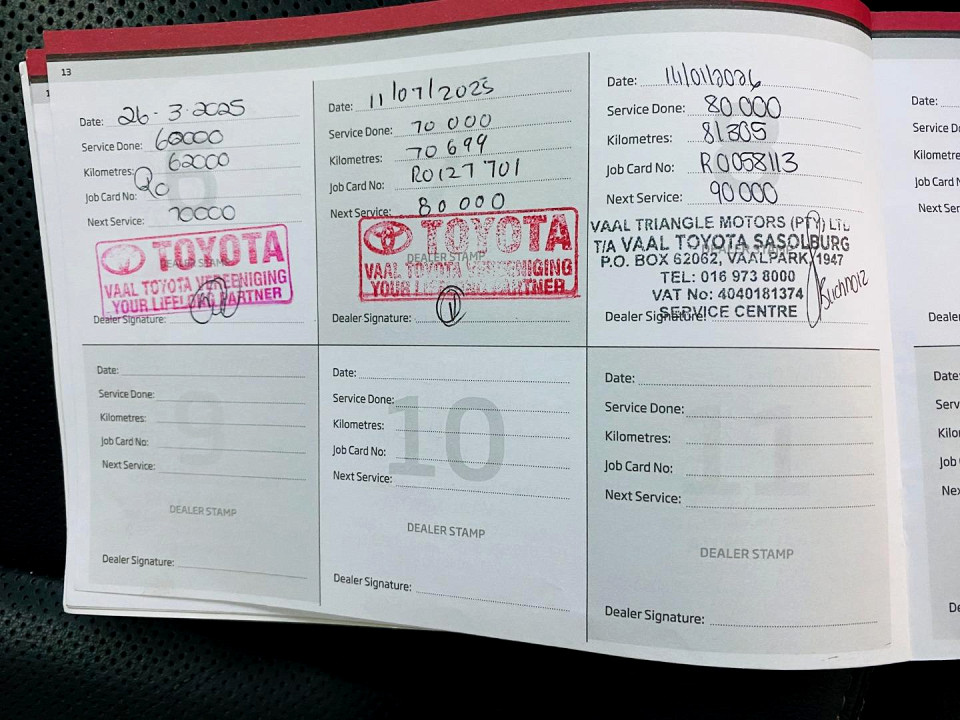 13
Date: 26-3-2025
Service Done: 60000
Kilometres: 62000
Job Card No: Ro
Next Service: 70000
DEALER STAMP
TOYOTA
VAAL TOYOTA VEREENIGING
YOUR LIFELONG PARTNER
Dealer Signature:
Date: 11/07/2025
Service Done: 70 000
Kilometres: 70 699
Job Card No: R0127 701
Next Service: 80 000
DEALER STAMP
TOYOTA
VAAL TOYOTA VEREENIGING
YOUR LIFELONG PARTNER
Dealer Signature:
8
Date: 14/01/2026
Service Done: 80 000
Kilometres: 81305
Job Card No: R0058113
Next Service: 90 000
VAAL TRIANGLE MOTORS (PTY) LTD
T/A VAAL TOYOTA SASOLBURG
P.O. BOX 62062, VAALPARK, 1947
TEL: 016 973 8000
VAT No: 4040181374
SERVICE CENTRE
Dealer Signature: Buchholz
9
Date:
Service Done:
Kilometres:
Job Card No:
Next Service:
DEALER STAMP
Dealer Signature:
10
Date:
Service Done:
Kilometres:
Job Card No:
Next Service:
DEALER STAMP
Dealer Signature:
11
Date:
Service Done:
Kilometres:
Job Card No:
Next Service:
DEALER STAMP
Dealer Signature:
Date:
Service D
Kilometre
Job Card N
Next Ser
Dealer
Date:
Serv
Kilo
Job
Ne
De